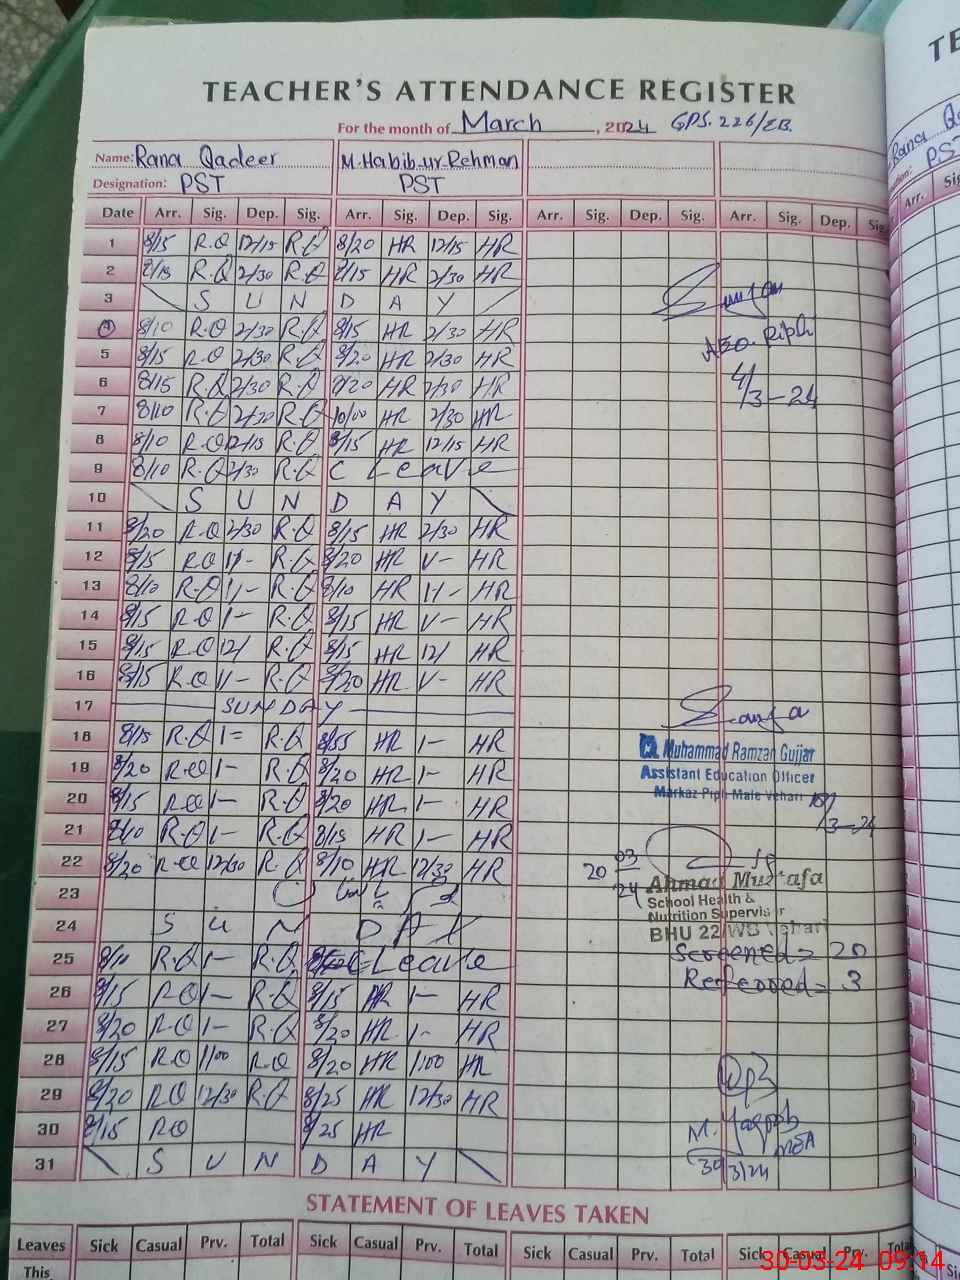 TEACHER'S ATTENDANCE REGISTER
For the month of March, 2024 GPS. 226/EB.
Name: Rana Qadeer M. Habib.ur.Rehman
Designation: PST PST
Date Arr. Sig. Dep. Sig. Arr. Sig. Dep. Sig. Arr. Sig. Dep. Sig. Arr. Sig. Dep. Sig
1 8/15 R.Q 12/15 R.Q 8/20 HR 12/15 HR
2 8/15 R.Q 2/30 R.Q 8/15 HR 2/30 HR
3 S U N D A Y
4 8/10 R.Q 2/30 R.Q 8/15 HR 2/30 HR
AEO. Piph
5 8/15 RQ 2/30 R.Q 8/20 HR 2/30 HR
6 8/15 R.Q 2/30 R.Q 8/20 HR 2/30 HR
4/3-24
7 8/10 R.Q 2/30 R.Q 10/00 HR 2/30 HR
8 8/10 R.Q 12/15 R.Q 8/15 HR 12/15 HR
9 8/10 R.Q 2/30 R.Q C Leave
10 S U N D A Y
11 8/20 RQ 2/30 R.Q 8/15 HR 2/30 HR
12 8/15 RQ R.Q 8/20 HR HR
13 8/10 R.Q R.Q 8/10 HR HR
14 8/15 RQ R.Q 8/15 HR HR
15 8/15 RQ 12/ R.Q 8/15 HR 12/ HR
16 8/15 R.Q R.Q 8/20 HR HR
17 SUNDAY
18 8/15 R.Q 1= R.Q HR 1- HR
Muhammad Ramzan Gujjar
19 8/20 RQ 1- R.Q 8/20 HR 1- HR
Assistant Education Officer
Markaz Piph Male Vehari
20 8/15 RQ 1- R.Q 8/20 HR 1- HR
21 8/10 R.Q 1- R.Q 8/15 HR 1- HR
22 8/20 RQ 12/30 R.Q 8/10 HR 12/30 HR
20 03 24
Ahmad Mustafa
23
School Health &
Nutrition Supervisor
24 S U N D A Y
BHU 22/WB Vehari
25 8/10 R.Q 1- R.Q C Leave
Screened = 20
Referred = 3
26 8/15 RQ 1- R.Q 8/15 HR 1- HR
27 8/20 RQ 1- R.Q 8/20 HR 1- HR
28 8/15 RQ 1/00 RQ 8/20 HR 1/00 HR
29 8/20 RQ 12/30 R.Q 8/25 HR 12/30 HR
30 8/15 RQ 8/25 HR
M. Yaqoob MEA
30/3/24
31 S U N D A Y
STATEMENT OF LEAVES TAKEN
Leaves Sick Casual Prv. Total Sick Casual Prv. Total Sick Casual Prv. Total Sick Casual Prv. Total
This
30-03-24 09:14